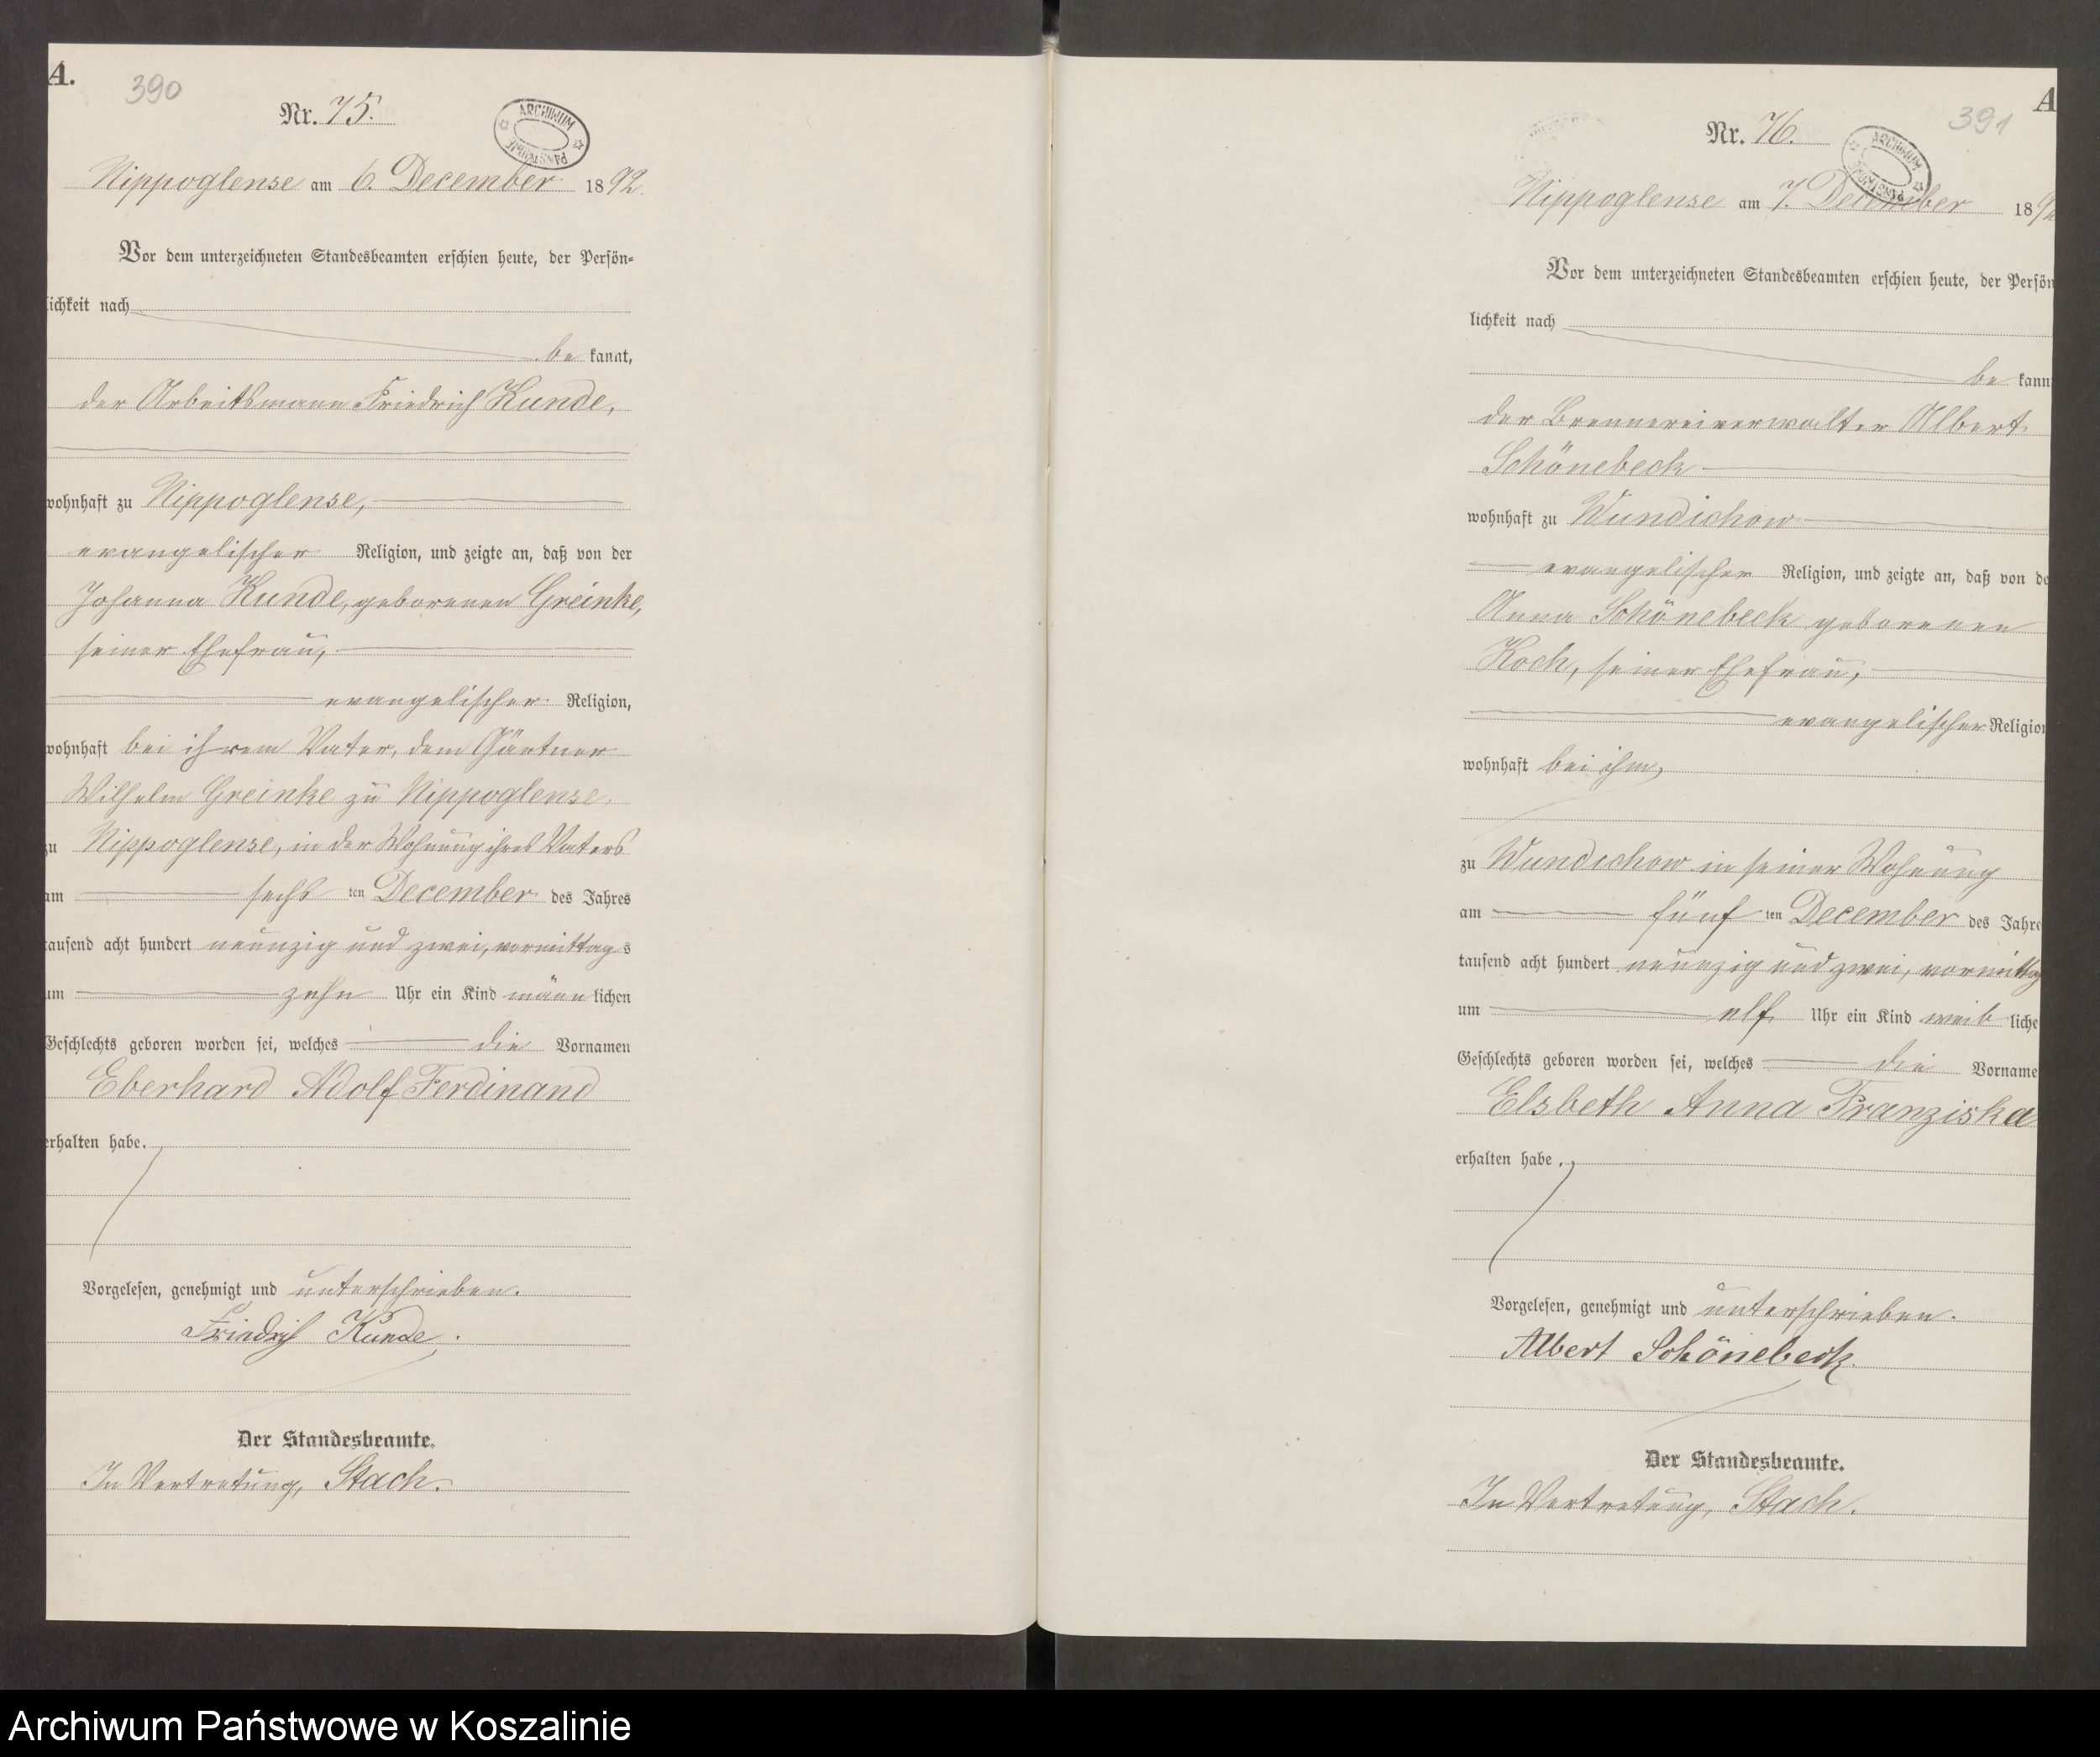 A.
390
Nr. 75.
ARCHIWUM PAŃSTWOWE
Nippoglense am 6. December 1892.
Vor dem unterzeichneten Standesbeamten erschien heute, der Persön-
lichkeit nach
be kannt,
der Arbeitsmann Friedrich Kunde,
wohnhaft zu Nippoglense,
evangelischer Religion, und zeigte an, daß von der
Johanna Kunde, geborenen Greinke,
seiner Ehefrau,
evangelischer Religion,
wohnhaft bei ihrem Vater, dem Gärtner
Wilhelm Greinke zu Nippoglense,
zu Nippoglense, in der Wohnung ihres Vaters
am sechs ten December des Jahres
tausend acht hundert neunzig und zwei, vormittags
um zehn Uhr ein Kind männlichen
Geschlechts geboren worden sei, welches die Vornamen
Eberhard Adolf Ferdinand
erhalten habe.
Vorgelesen, genehmigt und unterschrieben.
Friedrich Kunde.
Der Standesbeamte.
In Vertretung, Stach.
A
391
Nr. 76.
ARCHIWUM PAŃSTWOWE
Nippoglense am 7. December 1892
Vor dem unterzeichneten Standesbeamten erschien heute, der Persön
lichkeit nach
be kann
der Brennereiverwalter Albert
Schönebeck
wohnhaft zu Wundichow
evangelischer Religion, und zeigte an, daß von de
Anna Schönebeck geborenen
Koch, seiner Ehefrau,
evangelischer Religion
wohnhaft bei ihm,
zu Wundichow in seiner Wohnung
am fünf ten December des Jahre
tausend acht hundert neunzig und zwei, vormittag
um elf Uhr ein Kind weib liche
Geschlechts geboren worden sei, welches die Vorname
Elsbeth Anna Franziska
erhalten habe.
Vorgelesen, genehmigt und unterschrieben.
Albert Schönebeck.
Der Standesbeamte.
In Vertretung, Stach.
Archiwum Państwowe w Koszalinie